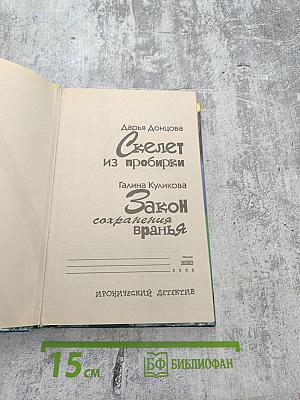 Дарья Донцова
Скелет
из пробирки
Галина Куликова
Закон
сохранения
вранья
Москва
2003
ИРОНИЧЕСКИЙ ДЕТЕКТИВ
15 см
БФ БИБЛИОФАН